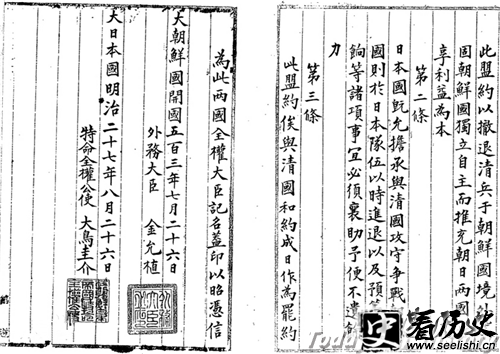 此盟約以撤退清兵于朝鮮國境外
固朝鮮國獨立自主而推充朝日兩國
享利益為本
第二條
日本國既允擔承與清國攻守爭戰
國則於日本隊伍以時進退以及預籌
餉等諸項事宜必須襄助予便不遺餘
力
第三條
此盟約俟與清國和約成日作為罷約
為此兩國全權大臣記名蓋印以昭憑信
大朝鮮國開國五百三年七月二十六日
外務大臣 金允植
大日本國明治二十七年八月二十六日
特命全權公使 大鳥圭介
史 看历史
www.seelishi.com